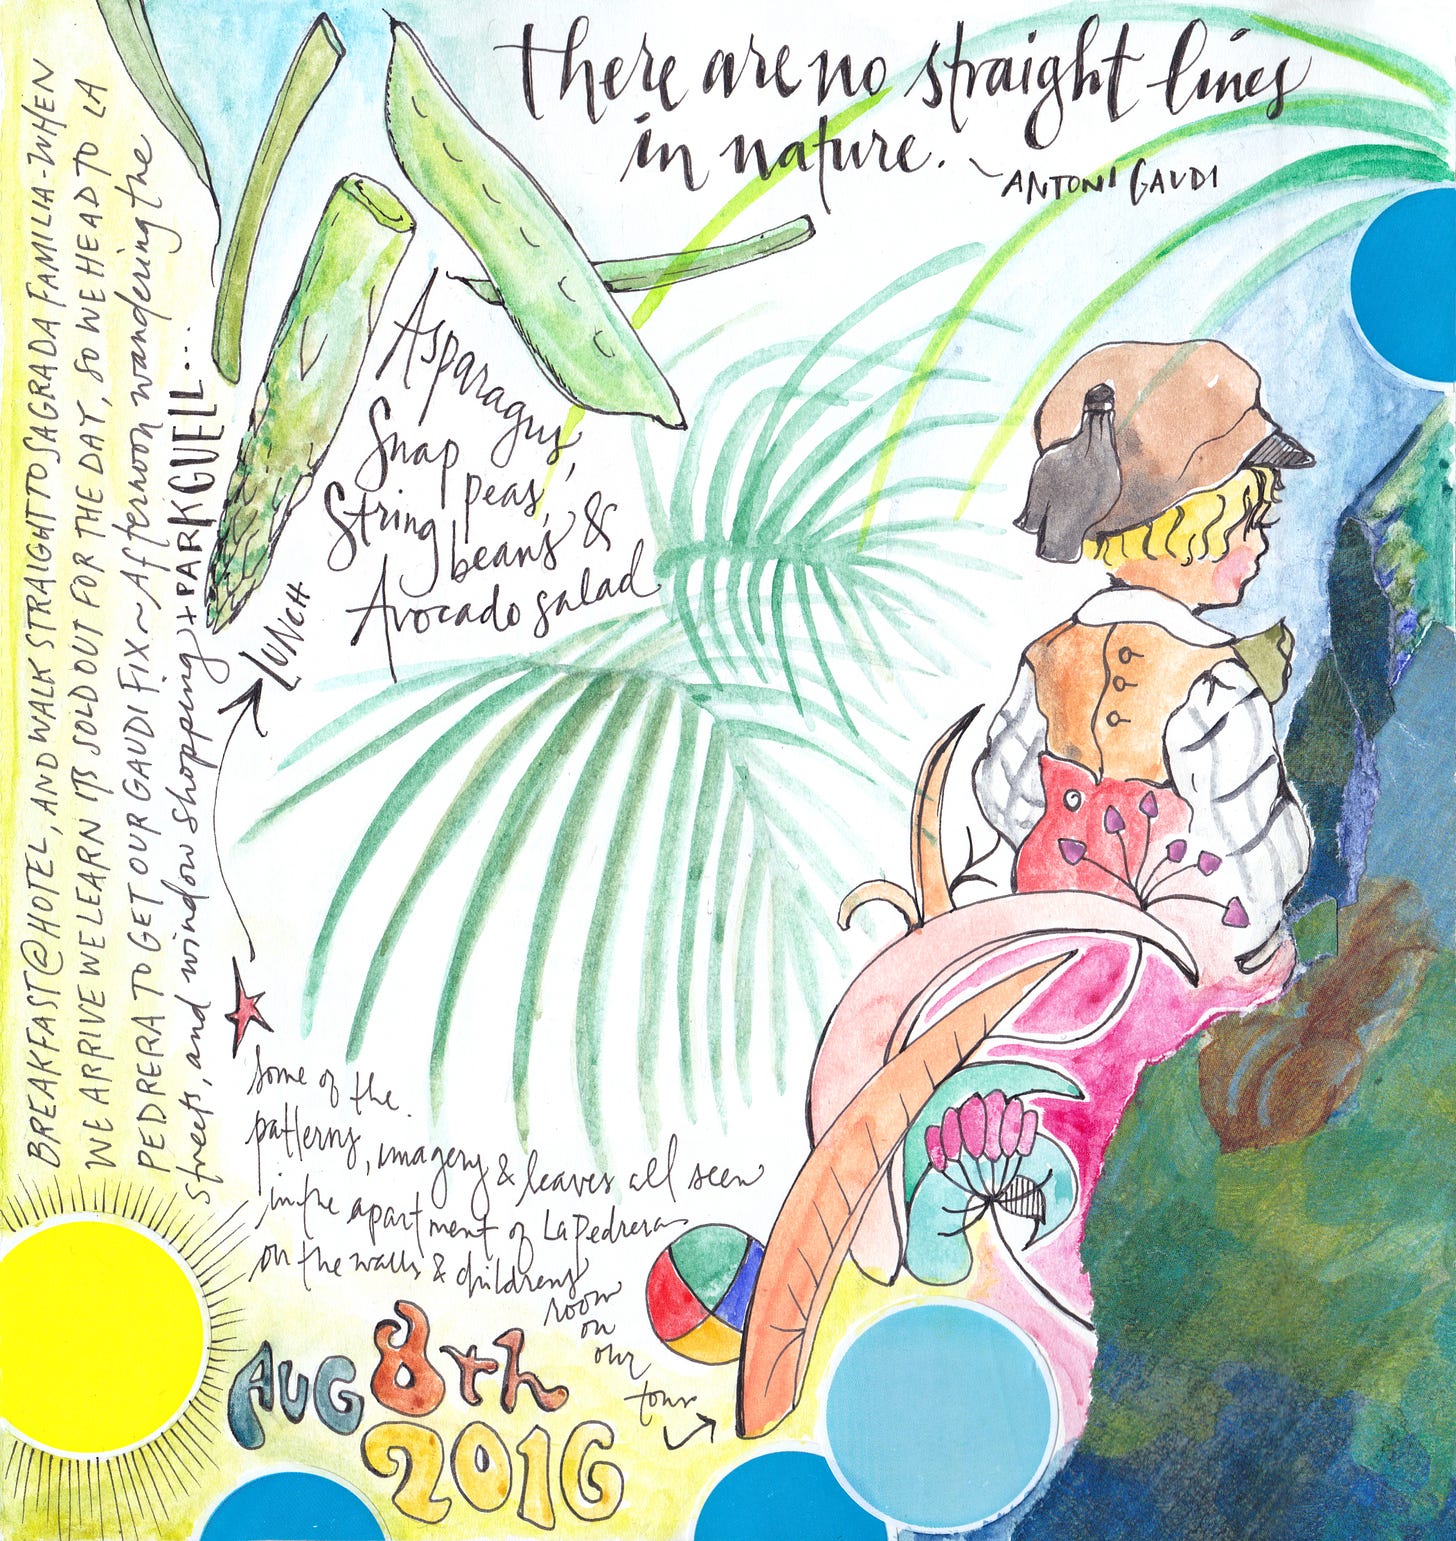 there are no straight lines
in nature.
~ANTONI GAUDI
BREAKFAST @ HOTEL, AND WALK STRAIGHT TO SAGRADA FAMILIA-WHEN
WE ARRIVE WE LEARN IT'S SOLD OUT FOR THE DAY, SO WE HEAD TO LA
PEDRERA TO GET OUR GAUDI FIX ~ Afternoon wandering the
streets, and window shopping + PARK GUELL...
Asparagus,
Snap peas,
String beans &
Avocado salad
LUNCH
Some of the
patterns, imagery & leaves all seen
in the apartment of La Pedrera
on the walls & childrens
room
on
our
tour
AUG 8th
2016